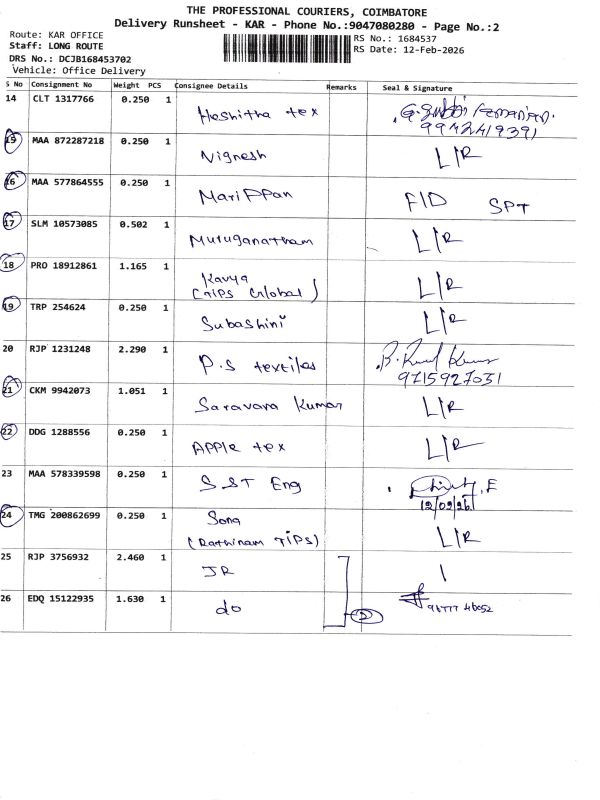 THE PROFESSIONAL COURIERS, COIMBATORE
Delivery Runsheet - KAR - Phone No.:9047080280 - Page No.:2
Route: KAR OFFICE
RS No.: 1684537
Staff: LONG ROUTE
RS Date: 12-Feb-2026
DRS No.: DCJB168453702
Vehicle: Office Delivery
S No Consignment No Weight PCS Consignee Details Remarks Seal & Signature
14 CLT 1317766 0.250 1 Hoshitha tex
9942419391
19 MAA 872287218 0.250 1 Vignesh L/R
16 MAA 577864555 0.250 1 Marippan F/D SPT
17 SLM 10573085 0.502 1 Muruganatham L/R
18 PRO 18912861 1.165 1 Kavya L/R
(TIPS Global)
19 TRP 254624 0.250 1 Subashini L/R
20 RJP 1231248 2.290 1 P.S textiles
9715927031
21 CKM 9942073 1.051 1 Saravana Kumar L/R
22 DDG 1288556 0.250 1 Apple tex L/R
23 MAA 578339598 0.250 1 S S T Eng
12/02/26
24 TMG 200862699 0.250 1 Sona L/R
(Rathinam TIPS)
25 RJP 3756932 2.460 1 JR
26 EDQ 15122935 1.630 1 do 2